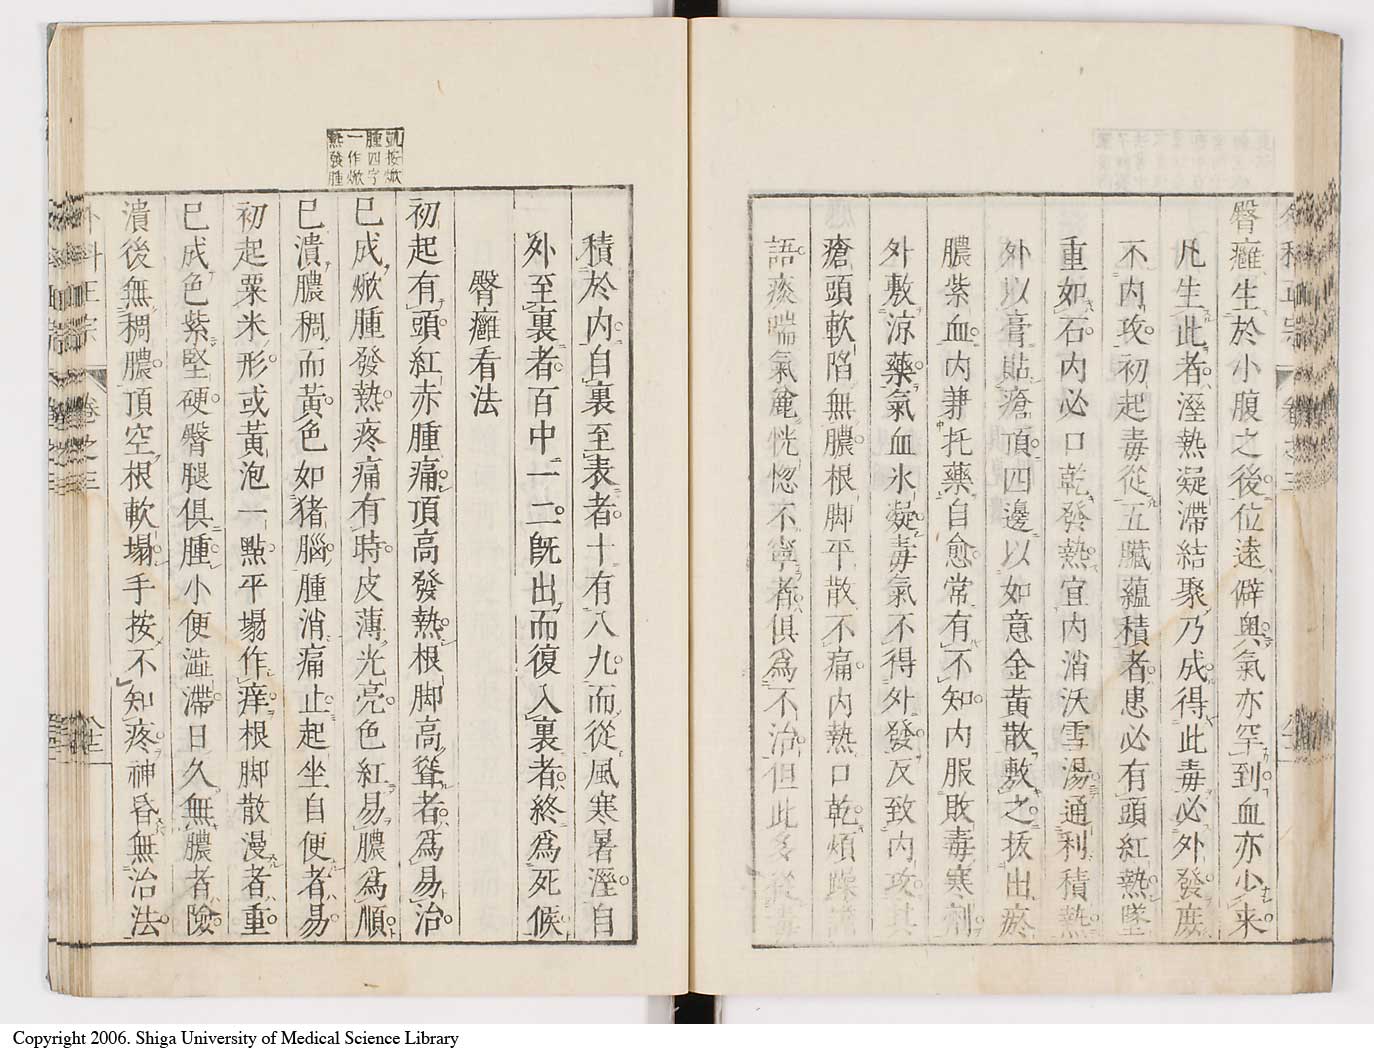 臀癰生於小腹之後位遠僻奥氣亦罕到血亦少来
凡生此者溼熱凝滯結聚乃成得此毒必外發庶
不内攻初起毒從五臓蘊積者患必有頭紅熱墜
重如石内必口乾發熱宜内消沃雪湯通利積熱
外以膏貼瘡頂四邊以如意金黄散敷之抜出瘀
膿紫血内兼托藥自愈常有不知内服敗毒寒劑
外敷涼藥氣血氷凝毒氣不得外發反致内攻其
瘡頭軟陷無膿根脚平散不痛内熱口乾煩躁譫
語痰喘氣麄恍惚不寧者俱為不治但此多從毒
積於内自裏至表者十有八九而從風寒暑溼自
外至裏者百中一二既出而復入裏者終為死候
臀癰看法
初起有頭紅赤腫痛頂高發熱根脚高聳者為易治
已成焮腫發熱疼痛有時皮薄光亮色紅易膿為順
已潰膿稠而黄色如猪腦腫消痛止起坐自便者易
初起粟米形或黄泡一點平塌作痒根脚散漫者重
已成色紫堅硬臀腿俱腫小便澁滯日久無膿者險
潰後無稠膿頂空根軟塌手按不知疼神昏無治法
凱按焮
腫四字
一作焮
熱發腫
外科正宗
卷之三
Copyright 2006. Shiga University of Medical Science Library